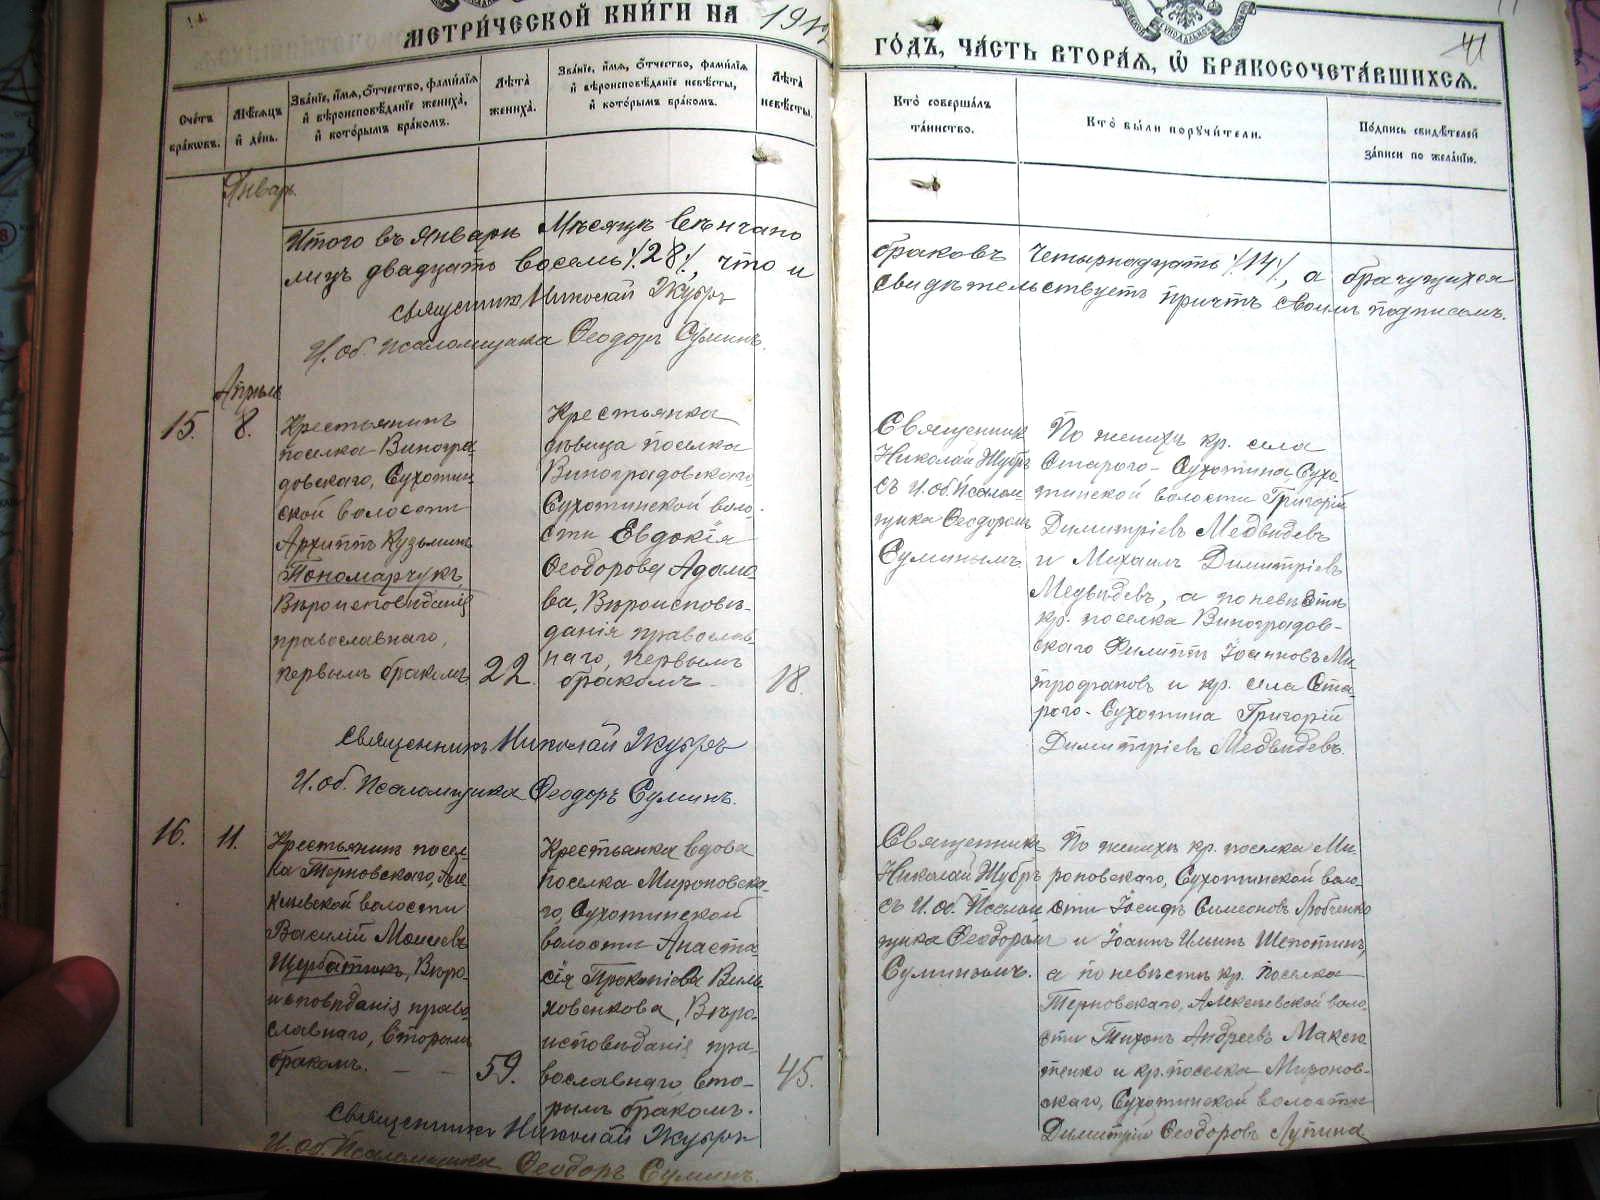 МЕТРИ́ЧЕСКОЙ КНИ́ГИ НА
ГО́ДЪ, ЧА́СТЬ ВТОРА́Я, Ѡ БРАКОСОЧЕТА́ВШИХСЯ.
41
Сче́тъ бра́ковъ.
Мѣ́сяцъ и де́нь.
Зва́нїе, и́мя, о́тчество, фами́лїя и вѣроисповѣ́данїе жениха̀, и кото́рымъ бра́комъ.
Лѣта̀ жениха̀.
Зва́нїе, и́мя, о́тчество, фами́лїя и вѣроисповѣ́данїе невѣ́сты, и кото́рымъ бра́комъ.
Лѣта̀ невѣ́сты.
Кто̀ соверша́лъ та́инство.
Кто̀ бы́ли поручи́тели.
По́дпись свидѣ́телей за́писи по жела́нїю.
Январ.
Итого въ Январѣ Мѣсяцѣ вѣнчано
браковъ четырнадцать /14/, а брачущихся
лицъ двадцать восемь /28/, что и
свидѣтельствуетъ причтъ своимъ подписомъ.
священникъ Николай Жубръ
И. об. псаломщика Ѳеодоръ Суминъ.
Апрѣль
15.
8.
Крестьянинъ
поселка Виногра
довскаго, Сухотин
ской волости
Архиппъ Кузьминъ
Пономарчукъ,
Вѣроисповѣданія
православнаго,
первымъ бракомъ
22.
Крестьянка
дѣвица поселка
Виноградовскаго,
Сухотинской воло-
сти Евдокія
Ѳеодорова Адамо-
ва, Вѣроисповѣ-
данія православ
наго, первымъ
бракомъ
18.
Священникъ
Николай Жубръ
съ И. об. Псалом
щика Ѳеодоромъ
Суминымъ
По женихѣ кр. села
Старого-Сухотина Сухо-
тинской волости Григорій
Димитріевъ Медвѣдевъ
и Михаилъ Димитріевъ
Медвѣдевъ, а по невѣстѣ
кр. поселка Виноградов-
скаго Филиппъ Іоанновъ Ми-
трофановъ и кр. села Ста-
рого-Сухотина Григорій
Димитріевъ Медвѣдевъ.
священникъ Николай Жубръ
И. об. Псаломщика Ѳеодоръ Суминъ.
16.
11.
Крестьянинъ посел-
ка Терновскаго, Але
ксѣевской волости
Василій Моисеевъ
Щербатюкъ, Вѣро-
исповѣданія право-
славнаго, вторымъ
бракомъ.
59.
Крестьянка вдова
поселка Мироновска-
го, Сухотинской
волости Анаста-
сія Прокопіева Виль
ховенкова, Вѣро-
исповѣданія пра-
вославнаго вто-
рымъ бракомъ.
45.
Священникъ
Николай Жубръ
съ И. об. Псалом
щика Ѳеодоромъ
Суминымъ.
По женихѣ кр. поселка Ми-
роновскаго, Сухотинской воло-
сти Іосифъ Симеоновъ Любченко
и Іоаннъ Ильинъ Шепотинъ,
а по невѣстѣ кр. поселка
Терновскаго, Алексѣевской воло-
сти Тихонъ Андреевъ Максю
тенко и кр. поселка Миронов-
скаго, Сухотинской волости
Димитрій Ѳеодоровъ Лупина
священникъ Николай Жубръ
И. об. Псаломщика Ѳеодоръ Суминъ.